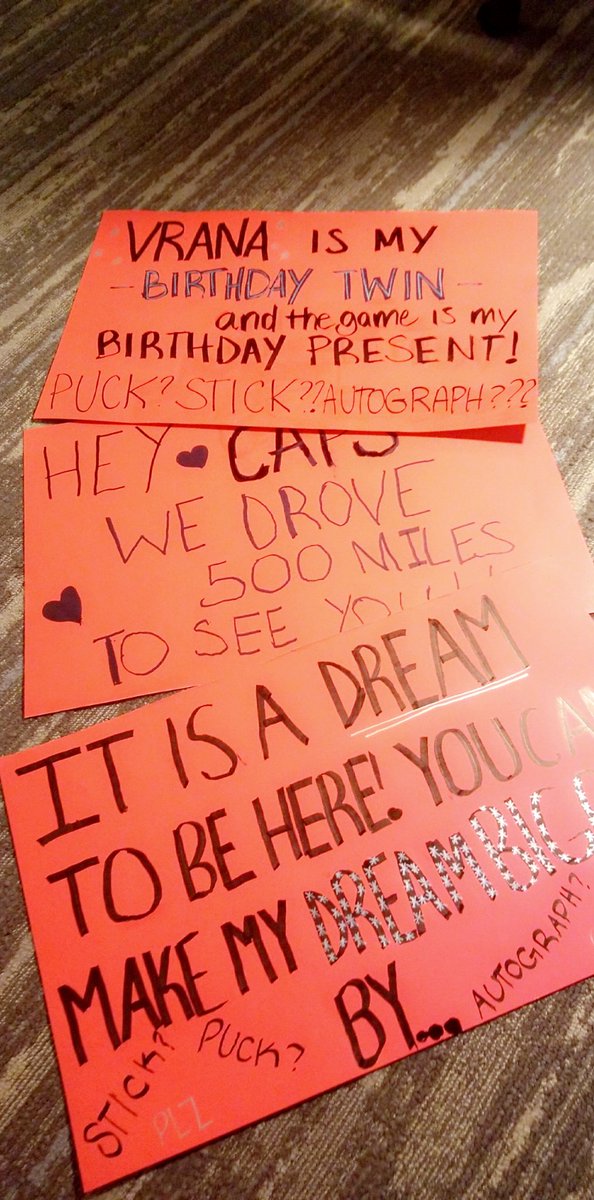 VRANA IS MY
- BIRTHDAY TWIN -
and the game is my
BIRTHDAY PRESENT!
PUCK? STICK?? AUTOGRAPH???
HEY CAPS
WE DROVE
500 MILES
TO SEE YOU!!!
IT IS A DREAM
TO BE HERE! YOU CAN
MAKE MY DREAM BIG
BY...
STICK?
PUCK?
AUTOGRAPH?
PLZ